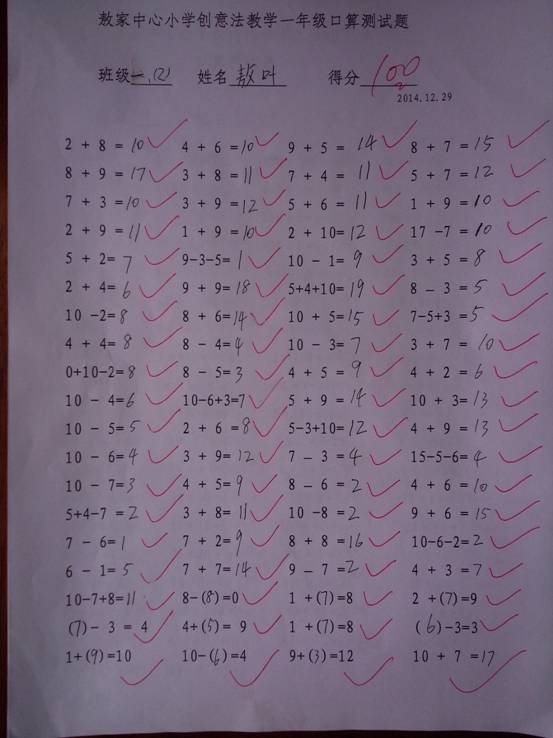 敖家中心小学创意法教学一年级口算测试题
班级一.(2) 姓名敖叶 得分100
2014.12.29
2 + 8 = 10 4 + 6 = 10 9 + 5 = 14 8 + 7 = 15
8 + 9 = 17 3 + 8 = 11 7 + 4 = 11 5 + 7 = 12
7 + 3 = 10 3 + 9 = 12 5 + 6 = 11 1 + 9 = 10
2 + 9 = 11 1 + 9 = 10 2 + 10= 12 17 -7 = 10
5 + 2= 7 9-3-5= 1 10 - 1= 9 3 + 5 = 8
2 + 4= 6 9 + 9= 18 5+4+10= 19 8 - 3 = 5
10 -2= 8 8 + 6= 14 10 + 5= 15 7-5+3 = 5
4 + 4= 8 8 - 4= 4 10 - 3= 7 3 + 7 = 10
0+10-2= 8 8 - 5= 3 4 + 5 = 9 4 + 2 = 6
10 - 4= 6 10-6+3=7 5 + 9 = 14 10 + 3= 13
10 - 5= 5 2 + 6 = 8 5-3+10= 12 4 + 9 = 13
10 - 6= 4 3 + 9= 12 7 - 3 = 4 15-5-6= 4
10 - 7= 3 4 + 5= 9 8 - 6 = 2 4 + 6 = 10
5+4-7 = 2 3 + 8= 11 10 -8 = 2 9 + 6 = 15
7 - 6= 1 7 + 2= 9 8 + 8 = 16 10-6-2= 2
6 - 1= 5 7 + 7= 14 9 - 7 = 2 4 + 3 = 7
10-7+8= 11 8-(8)=0 1 +(7)=8 2 +(7)=9
(7)- 3 = 4 4+(5)= 9 1 +(7)=8 (6)-3=3
1+(9)=10 10-(6)=4 9+(3)=12 10 + 7 =17